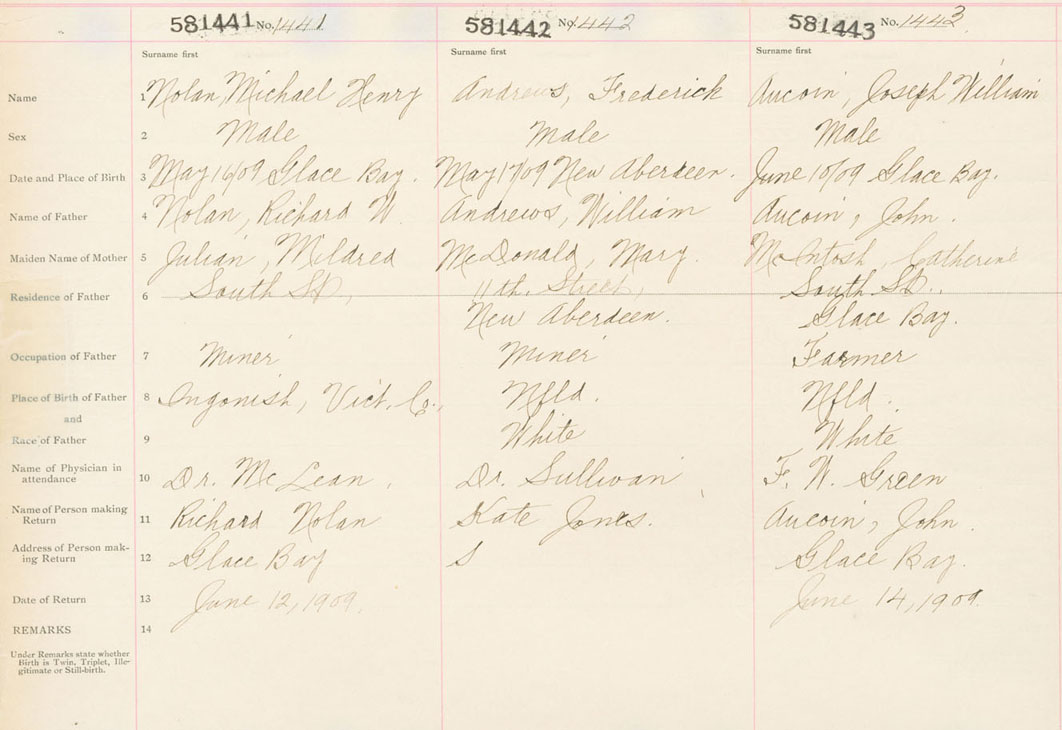 581441 No. 1441 581442 No. 1442 581443 No. 1443
Surname first Surname first Surname first
Name 1 Nolan, Michael Henry Andrews, Frederick Aucoin, Joseph William
Sex 2 Male Male Male
Date and Place of Birth 3 May 16/09 Glace Bay. May 17/09 New Aberdeen. June 10/09 Glace Bay.
Name of Father 4 Nolan, Richard W. Andrews, William Aucoin, John.
Maiden Name of Mother 5 Julian, Mildred McDonald, Mary. McIntosh, Catherine
Residence of Father 6 South St., 11th. Street, South St.,
New Aberdeen. Glace Bay.
Occupation of Father 7 Miner Miner Farmer
Place of Birth of Father 8 Ingonish, Vict. Co., Nfld. Nfld.
and
Race of Father 9 White White
Name of Physician in
attendance 10 Dr. McLean, Dr. Sullivan F. W. Green
Name of Person making
Return 11 Richard Nolan Kate Jones. Aucoin, John.
Address of Person mak-
ing Return 12 Glace Bay S Glace Bay.
Date of Return 13 June 12, 1909, June 14, 1909.
REMARKS 14
Under Remarks state whether
Birth is Twin, Triplet, Ille-
gitimate or Still-birth.